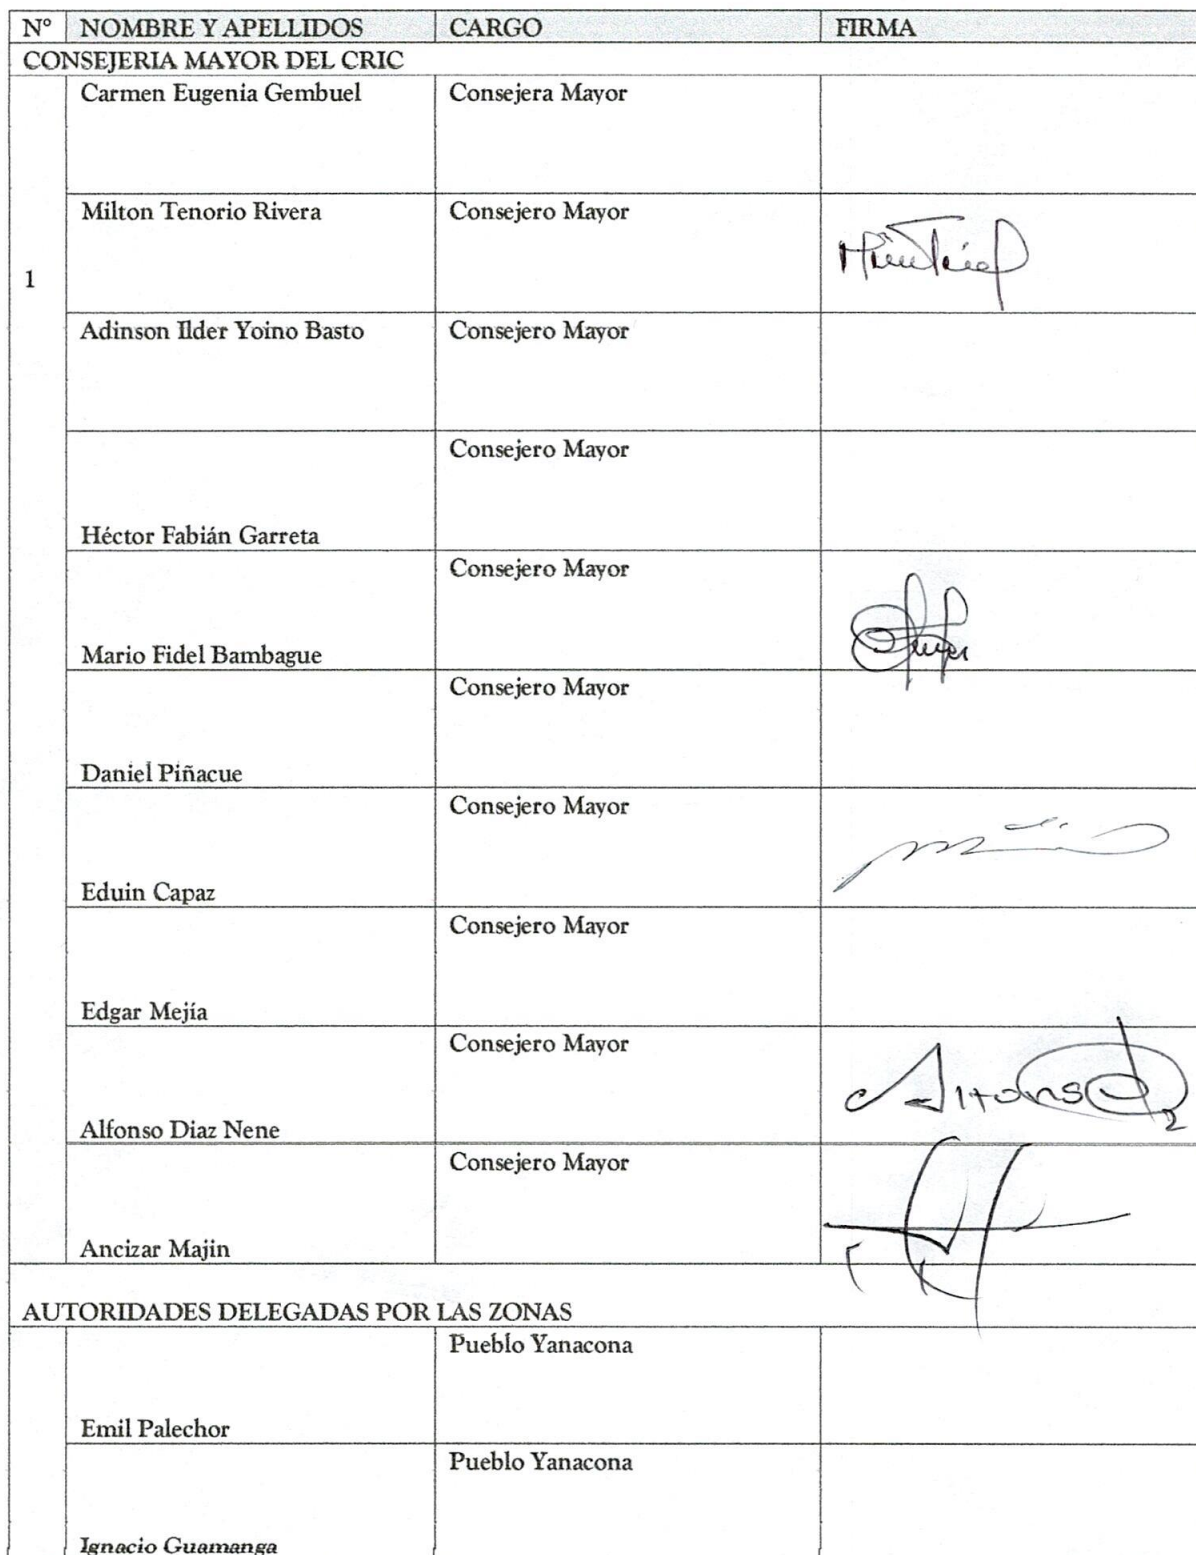 N° NOMBRE Y APELLIDOS CARGO FIRMA
CONSEJERIA MAYOR DEL CRIC
1
Carmen Eugenia Gembuel Consejera Mayor
Milton Tenorio Rivera Consejero Mayor
Adinson Ilder Yoino Basto Consejero Mayor
Consejero Mayor
Héctor Fabián Garreta
Consejero Mayor
Mario Fidel Bambague
Consejero Mayor
Daniel Piñacue
Consejero Mayor
Eduin Capaz
Consejero Mayor
Edgar Mejía
Consejero Mayor
Alfonso
Alfonso Diaz Nene
Consejero Mayor
Ancizar Majin
AUTORIDADES DELEGADAS POR LAS ZONAS
Pueblo Yanacona
Emil Palechor
Pueblo Yanacona
Ignacio Guamanga